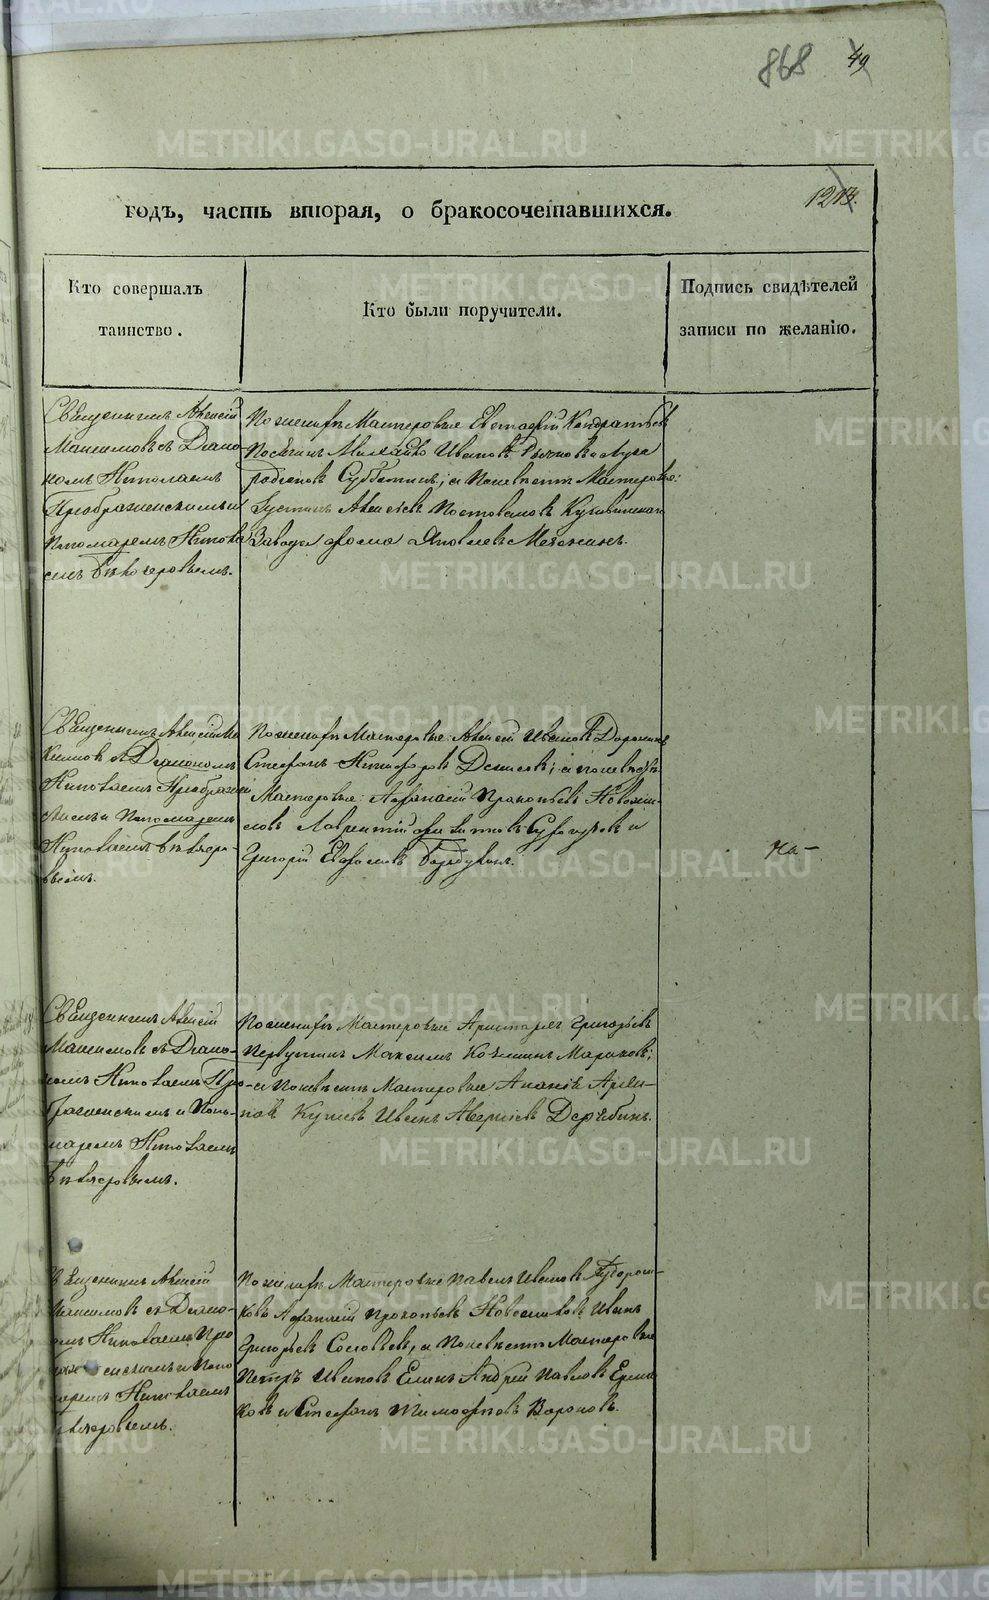 868 49
1213.
годъ, часть вторая, о бракосочетавшихся.
Кто совершалъ
таинство.
Кто были поручители.
Подпись свидѣтелей
записи по желанію.
Священникъ Алексій
Максимовъ съ Діако-
номъ Николаемъ
Преображенскимъ и
Пономаремъ Никола
емъ
По женихѣ Мастеровые Евстафій Кондратьевъ
Иванов
Субботинъ; и По невѣстѣ Мастеровые:
Алексѣев Кушвинскаго
Завода Фома Яковлевъ
Священникъ Алексій Ма
ксимов съ Діакономъ
Николаемъ Преображен
скимъ и Пономаремъ
Николаемъ
По женихѣ Мастеровые: Алексій Ивановъ
Стефанъ Никифоровъ Денисовъ; и по невѣстѣ
Мастеровые: Афанасій Прокопьевъ Новосе-
ловъ Лаврентій и
Григорій
на-
Священникъ Алексій
Максимовъ съ Діако-
номъ Николаемъ Прео
браженскимъ и Поно-
маремъ Николаемъ
По женихѣ Мастеровые Аристархъ Григорьевъ
Первушинъ Максимъ Козминъ Мариковъ;
и По невѣстѣ Мастеровые Ананій Архи-
повъ Иванъ Дерябинъ.
Священникъ Алексій
Максимовъ съ Діако-
номъ Николаемъ Прео
браженскимъ и Поно
маремъ Николаемъ
По женихѣ Мастеровые Павелъ Ивановъ
Афанасій Прокопьевъ Новоселовъ Иванъ
Григорьевъ Соловьевъ, и По невѣстѣ Мастеровые
Петръ Ивановъ Елинъ Андрей Павловъ Ерма
ковъ и Стефанъ Тимофѣевъ Вороновъ.
METRIKI.GASO-URAL.RU